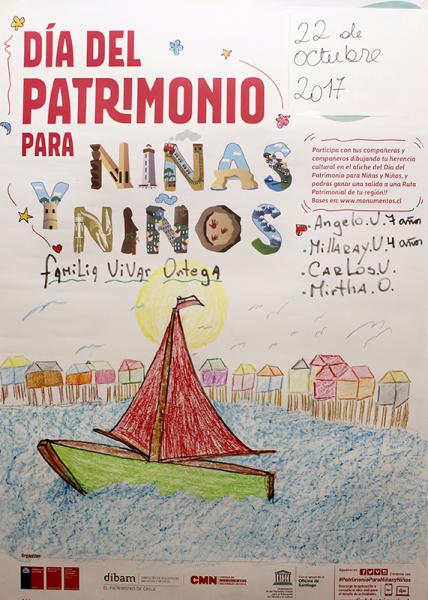 DÍA DEL
PATRIMONIO
PARA
NIÑAS
Y NIÑOS
22 de
octubre
2017
Participa con tus compañeras y
compañeros dibujando tu herencia
cultural en el afiche del Día del
Patrimonio para Niñas y Niños, y
podrás ganar una salida a una Ruta
Patrimonial de tu región!!
Bases en: www.monumentos.cl
• Angelo.V. 7 años
• Millaray.V. 4 años
• CARLOS.V.
• Mirtha.O.
Familia Vivar Ortega
Organizan
dibam
EL PATRIMONIO DE CHILE
CMN
CONSEJO DE
MONUMENTOS
Oficina de
Santiago
#PatrimonioParaNiñasyNiños